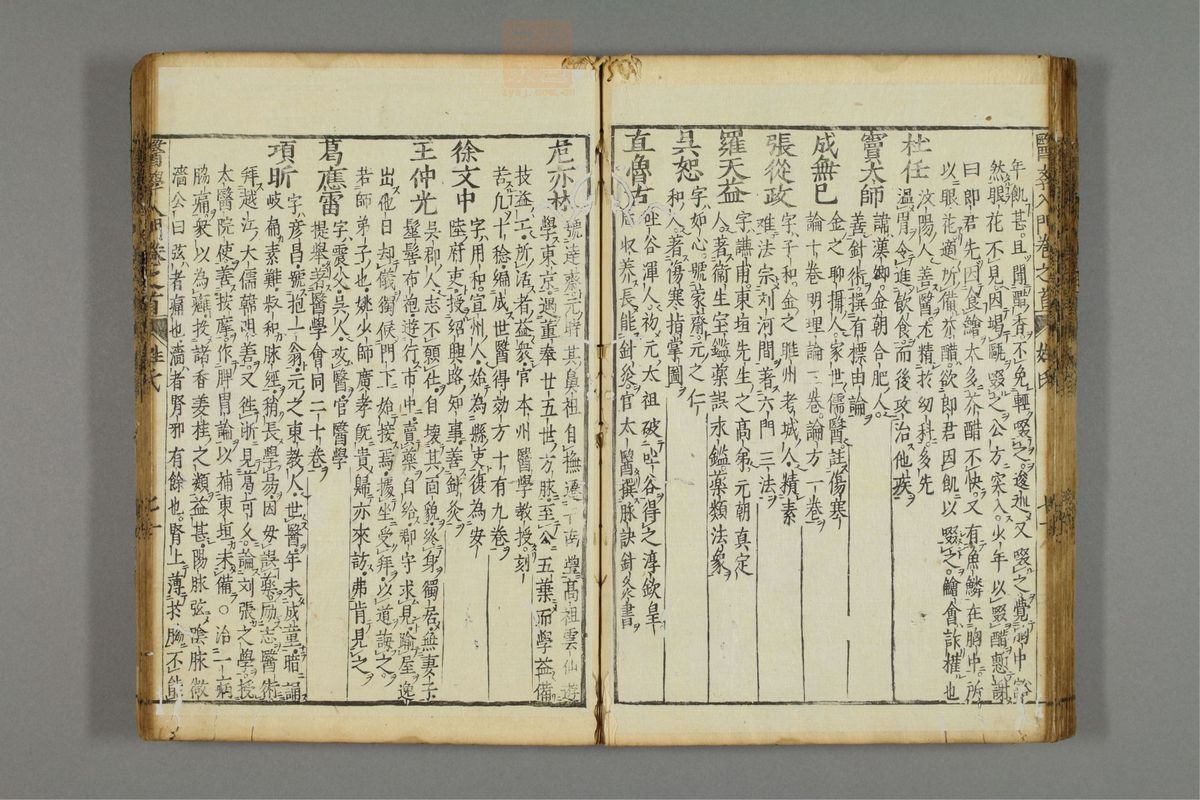 醫學入門卷之首 姓氏
年飢甚且聞羣者不免輕啜之逡巡又啜之覺胸中豁
然眼花不見因竭甌啜之公方突入少年以啜醋慙謝
曰郎君先因食鱠太多芥醋不快又有魚鱗在胸中所
以眼花適所備芥醋欲郎君因飢以啜之鱠會詐權也
杜任
汶陽人善醫术精於幼科多先
溫胃令進飲食而後攻治他疾
竇太師
諱漢卿金朝合肥人
善針術撰有標由論
成無已
金之聊攝人家世儒醫註傷寒
論十卷明理論三卷論方一卷
張從政
字子和金之睢州考城人精素
难法宗刘河間著六門三法
羅天益
字謙甫東垣先生之高弟元朝真定
人著衛生宝鑑藥誤永鑑藥類法象
吳恕
字如心號蒙齋元之仁
和人著傷寒指掌圖
直魯古
吐谷渾人初元太祖破吐谷得之淳欽皇
后收养長能針灸官太醫撰脉訣針灸書
危亦林
號達齋元時其鼻祖自撫遷 高祖雲仙遊
學東京遇董奉廿五世方脉至公五葉而學益備
技益工所活者益衆官本州醫學教授刻
苦凡十稔編成世醫得効方十有九卷
徐文中
字用和宣州人始為縣吏復為安
陸府吏授紹興路知事善針灸
王仲光
吳郡人志不願仕自壞其面貌終身獨居無妻子
鬆髻布袍遊行市中賣藥自給郡守求見踰屋逸
出他日却儀獨候門下始接焉據坐受拜以道誨之
若師弟子也姚少師廣孝既貴歸亦來訪弗肯見之
葛應雷
字震父吳人攻醫官醫學
提舉著醫學會同二十卷
項昕
字彦昌號抱一翁元之東教人世醫年未成童暗誦
岐扁素難叔和脉經稍長學易因毋誤藥励志醫術
拜越江大儒韓明善又徃浙見葛可久論刘張之學授
太醫院使善按摩作脾胃論以補東垣未備○治一病
脇痛衆以為癰投諸香姜桂之類益甚陽脉弦陰脉微
濇公曰弦者痛也濇者腎邪有餘也腎上薄於胸不能
醫學入門卷之首 姓氏